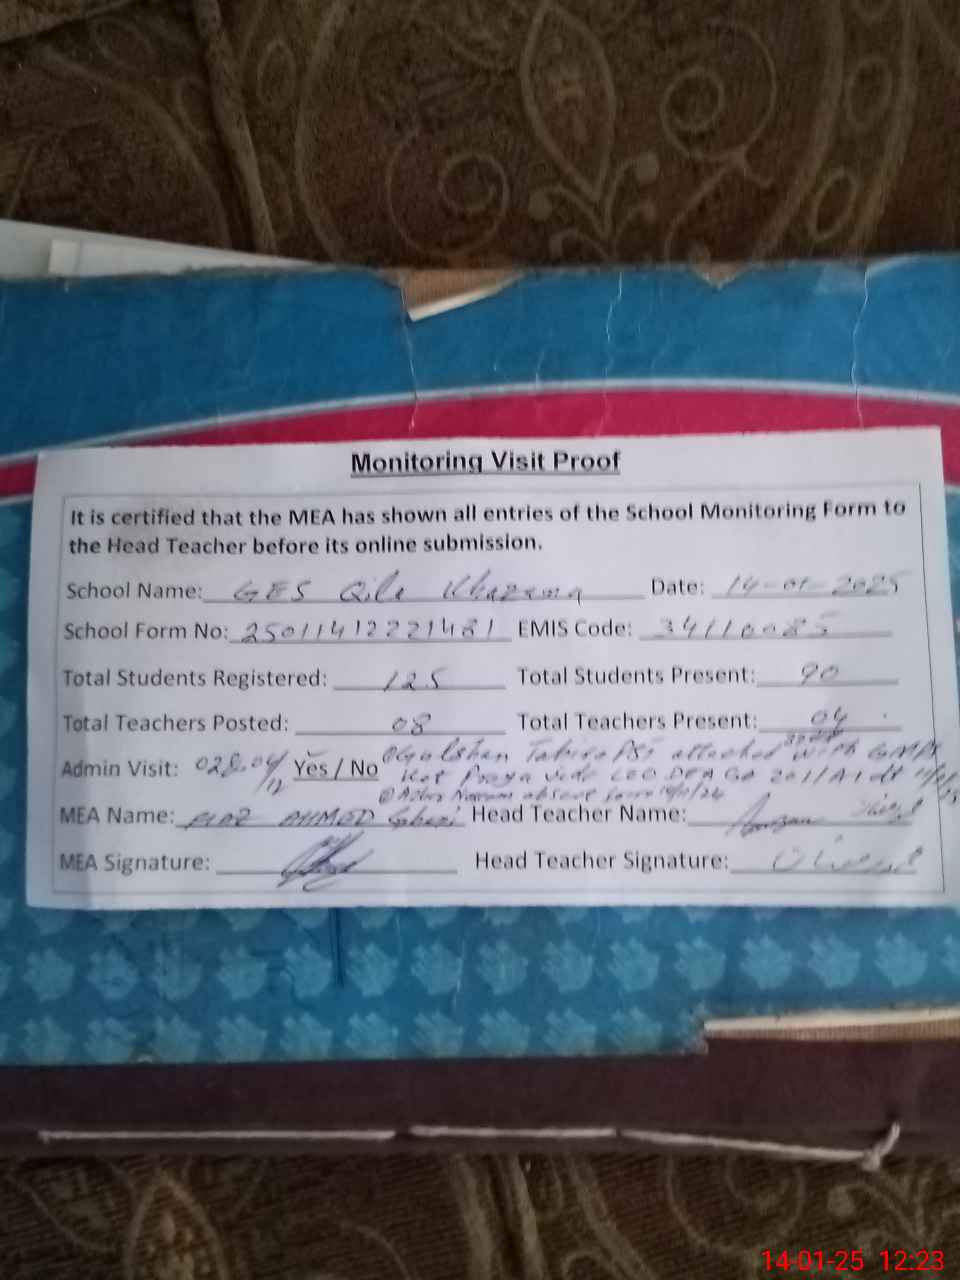 Monitoring Visit Proof
It is certified that the MEA has shown all entries of the School Monitoring Form to
the Head Teacher before its online submission.
School Name: GES Qila Date: 14-01-2025
School Form No: 25011412221481 EMIS Code:
Total Students Registered: 125 Total Students Present: 90
Total Teachers Posted: 08 Total Teachers Present: 04
Admin Visit: Yes / No Gulshan attached with
absent
MEA Name: AHMED Head Teacher Name:
MEA Signature: Head Teacher Signature:
14-01-25 12:23